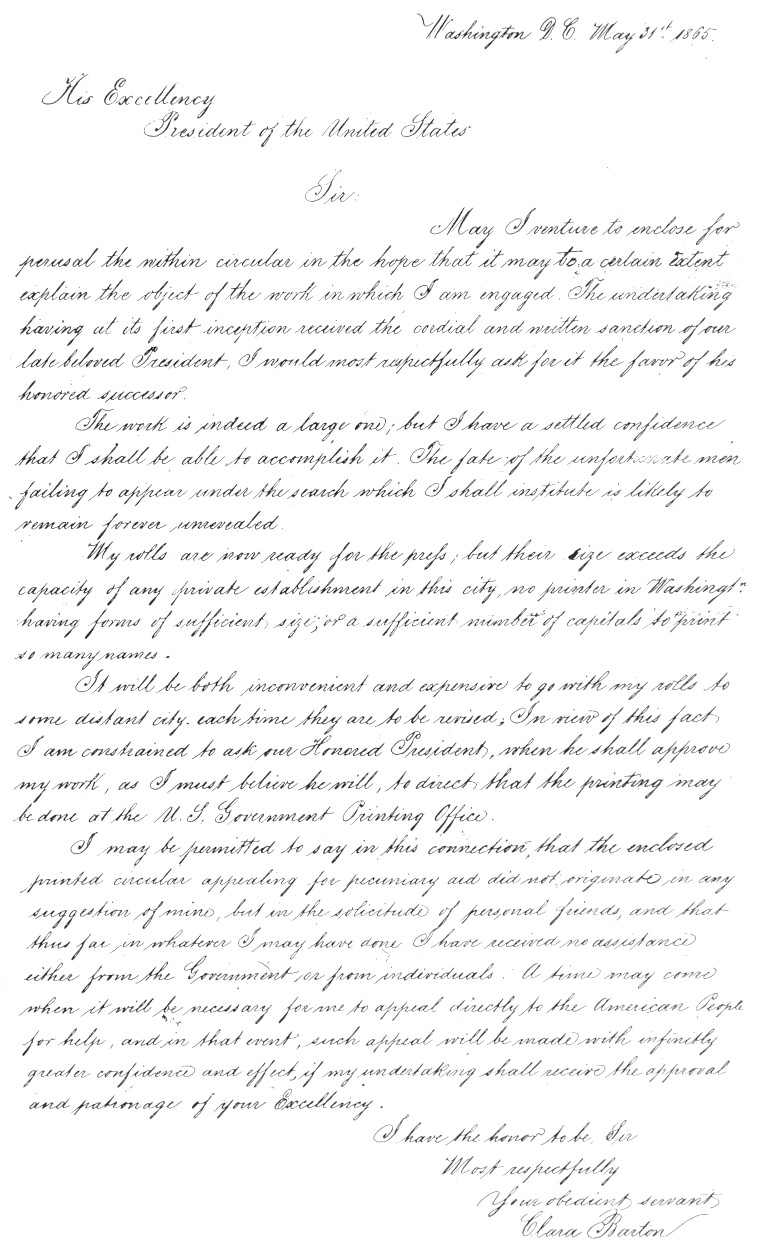 Washington D.C. May 31st 1865.
His Excellency
President of the United States
Sir:
May I venture to enclose for
perusal the within circular in the hope that it may to a certain extent
explain the object of the work in which I am engaged. The undertaking
having at its first inception received the cordial and written sanction of our
late beloved President, I would most respectfully ask for it the favor of his
honored successor.
The work is indeed a large one; but I have a settled confidence
that I shall be able to accomplish it. The fate of the unfortunate men
failing to appear under the search which I shall institute is likely to
remain forever unrevealed.
My rolls are now ready for the press; but their size exceeds the
capacity of any private establishment in this city, no printer in Washingtn
having forms of sufficient size, or a sufficient number of capitals to print
so many names.
It will be both inconvenient and expensive to go with my rolls to
some distant city each time they are to be revised; In view of this fact
I am constrained to ask our Honored President, when he shall approve
my work, as I must believe he will, to direct that the printing may
be done at the U.S. Government Printing Office.
I may be permitted to say in this connection, that the enclosed
printed circular appealing for pecuniary aid did not originate in any
suggestion of mine, but in the solicitude of personal friends, and that
thus far in whatever I may have done I have received no assistance
either from the Government or from individuals. A time may come
when it will be necessary for me to appeal directly to the American People
for help, and in that event, such appeal will be made with infinitly
greater confidence and effect, if my undertaking shall receive the approval
and patronage of your Excellency.
I have the honor to be, Sir
Most respectfully
Your obedient servant
Clara Barton